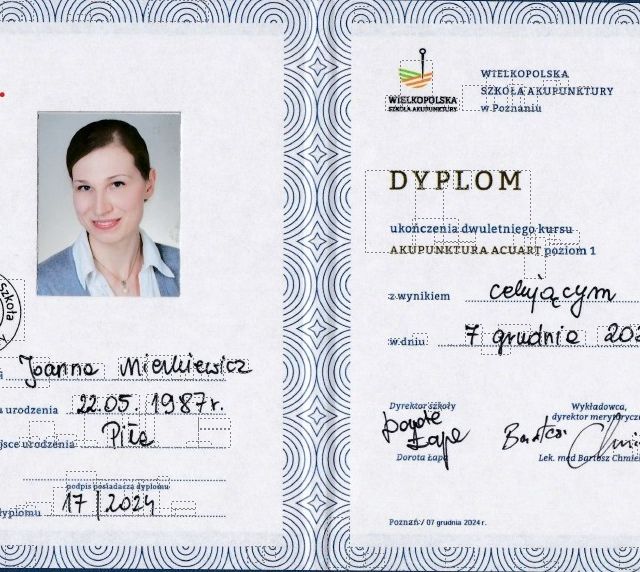 Szkoła
Joanna Mierkiewicz
urodzenia 22.05.1987r.
urodzenia Piła
podpis posiadacza dyplomu
dyplomu 17/2024
WIELKOPOLSKA
SZKOŁA AKUPUNKTURY
WIELKOPOLSKA
SZKOŁA AKUPUNKTURY
w Poznaniu
DYPLOM
ukończenia dwuletniego kursu
AKUPUNKTURA ACUART poziom 1
z wynikiem celującym
w dniu 7 grudnia 202
Dyrektor szkoły
Dorota Łapa
Dorota Łapa
Wykładowca,
dyrektor merytoryczn
Bartosz Chmie
Lek. med Bartosz Chmiel
Poznań / 07 grudnia 2024 r.